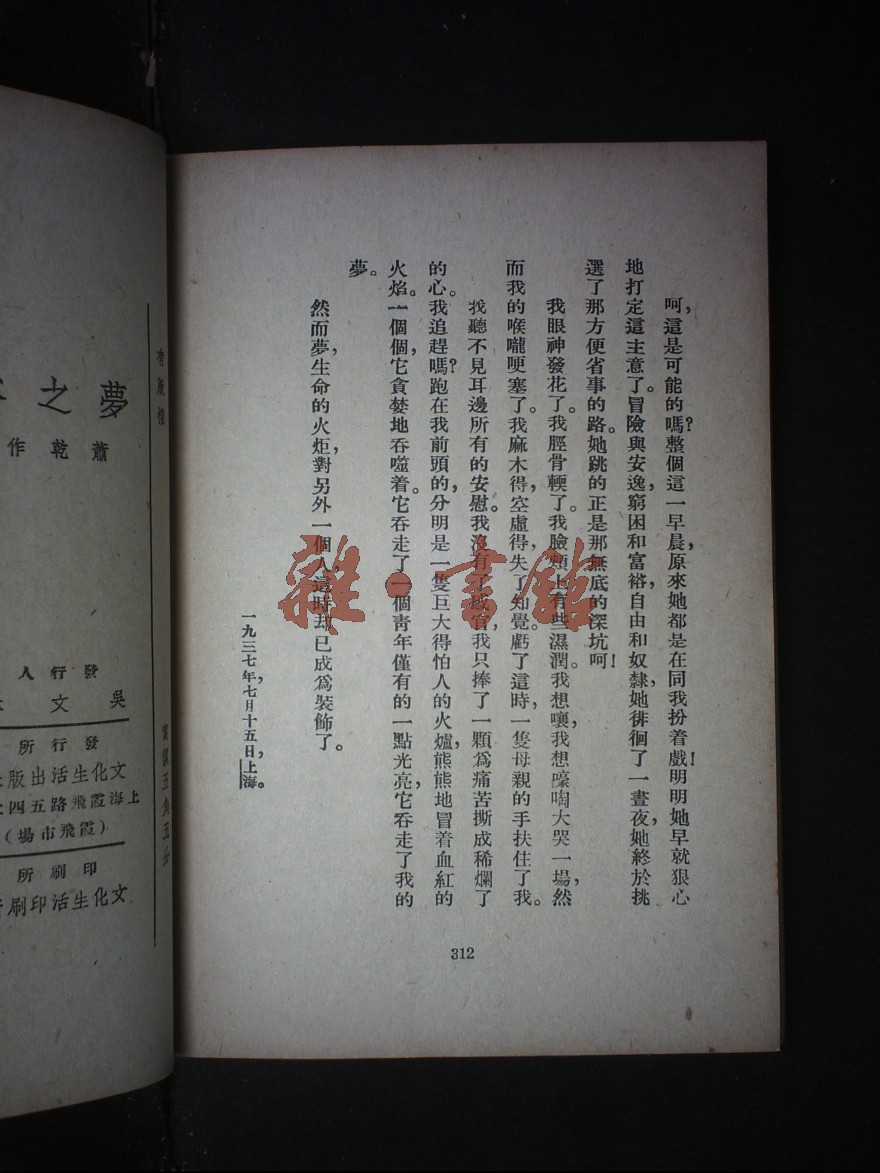 呵，這是可能的嗎？整個這一早晨，原來她都是在同我扮着戲！明明她早就狠心
地打定這主意了。冒險與安逸，窮困和富裕，自由和奴隸，她徘徊了一晝夜，她終於挑
選了那方便省事的路。她跳的正是那無底的深坑呵！
我眼神發花了。我脛骨輭了。我臉頰上有些濕潤。我想嚷，我想嚎啕大哭一場，然
而我的喉嚨哽塞了。我麻木得，空虛得失了知覺。虧了這時，一隻母親的手扶住了我。
我聽不見耳邊所有的安慰。我沒有了感官，我只捧了一顆爲痛苦撕成稀爛了
的心。我追趕嗎？跑在我前頭的，分明是一隻巨大得怕人的火爐，熊熊地冒着血紅的
火焰。一個個，它貪婪地吞噬着。它吞走了一個靑年僅有的一點光亮，它吞走了我的
夢。
然而夢，生命的火炬，對另外一個人這時却已成爲裝飾了。
一九三七年，七月十五日，上海。
312
雜·書館
有版權
實價五角五分
夢之
蕭乾作
發行人
吳文
發行所
文化生活出版
上海霞飛路五四
（霞飛市場）
印刷所
文化生活印刷